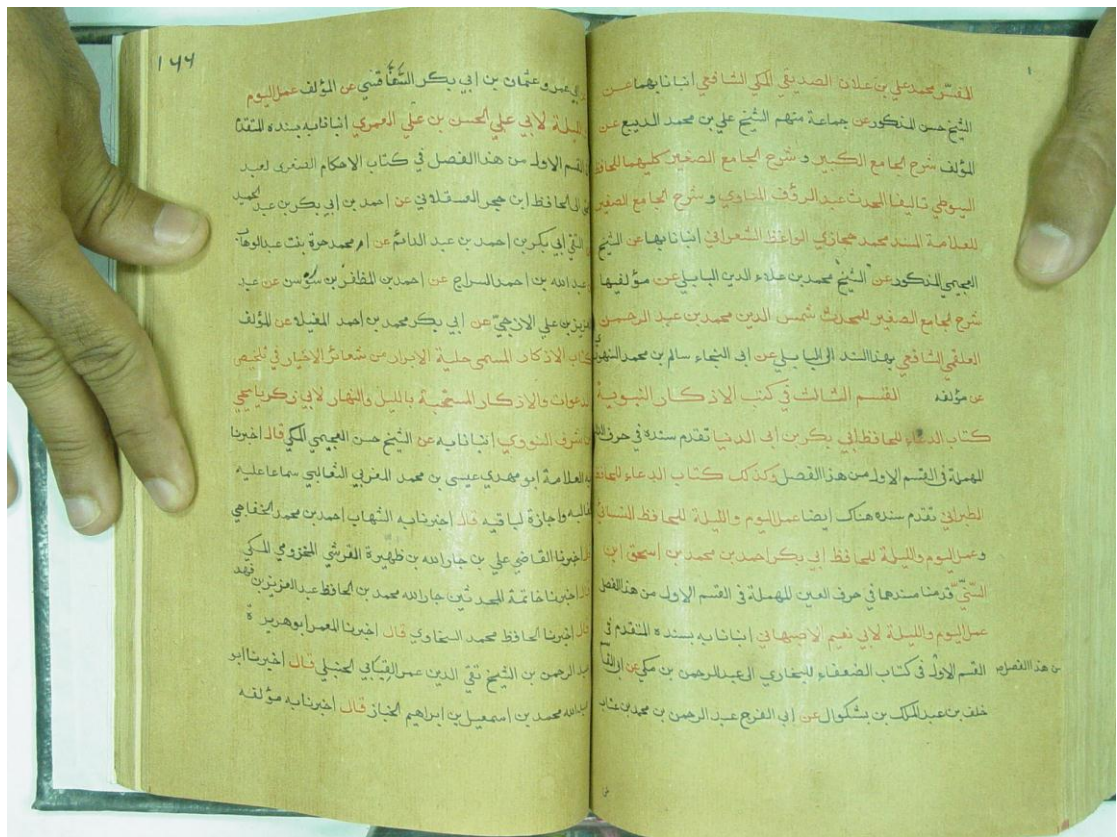 المفسّر محمد علي بن علان الصديقي المكي الشافعي انبانا بهما عن
الشيخ حسن المذكور عن جماعة منهم الشيخ علي بن محمد الديبع عن
المؤلف شرح الجامع الكبير و شرح الجامع الصغير كليهما للحافظ
السيوطي تاليف المحدث عبد الرؤف المناوي و شرح الجامع الصغير
للعلامة المسند محمد حجازي الواعظ الشعراني انبانا بها عن الشيخ
العجيمي المذكور عن الشيخ محمد بن علاء الدين البابلي عن مؤلفيها
شرح الجامع الصغير للمحدث شمس الدين محمد بن عبد الرحمن
العلقمي الشافعي بهذا السند الى البابلي عن ابى النجاء سالم بن محمد السنهوري
عن مؤلفه القسم الثالث في كتب الاذكار النبوية
كتاب الدعاء للحافظ ابي بكر بن أبى الدنيا تقدم سنده في حرف الذال
المهملة في القسم الاول من هذا الفصل وكذلك كتاب الدعاء للحافظ
الطبراني تقدم سنده هناك ايضا عمل اليوم والليلة للحافظ النسائي
وعمل اليوم والليلة للحافظ ابي بكر احمد بن محمد بن اسحق ابن
السّنّي قدمنا سندهما في حرف العين المهملة في القسم الاول من هذا الفصل
عمل اليوم والليلة لابي نعيم الاصبهاني انبانا به بسنده المتقدم في
القسم الاول في كتاب الضعفاء للبخاري الى عبد الرحمن بن مكي عن ابى القا
من هذا الفصل
خلف بن عبد الملك بن بشكوال عن ابي الفرج عبد الرحمن بن محمد بن عتاب
١٤٤
ابي عمرو عثمان بن ابي بكر عن المؤلف عمل اليوم
والليلة لابي علي الحسن بن علي المعمري انبانا به بسنده المتقد
في القسم الاول من هذا الفصل في كتاب الاحكام الصغرى لعبد
الحق الى الحافظ ابن حجر العسقلاني عن احمد بن ابي بكر بن عبد الحميد
التقي ابي بكر بن احمد بن عبد الدائم عن ام محمد حرة بنت عبد الوهاب
عبد الله بن احمد السراج عن احمد بن المظفر بن سوسن عن عبد
العزيز بن علي الازجي عن ابي بكر محمد بن احمد المفيد عن المؤلف
كتاب الاذكار المسمى حلية الابرار من شعائر الاخيار في تلخيص
الدعوات والاذكار المستحبة بالليل والنهار لابي زكريا يحيى
بن شرف النووي انبانا به عن الشيخ حسن العجيمي المكي قال اخبرنا
به العلامة ابو مهدي عيسى بن محمد المغربي الثعالبي سماعا عليه
لغالبه واجازة لباقيه قال اخبرنا به الشهاب احمد بن محمد الخفاجي
قال اخبرنا القاضي علي بن جار الله بن ظهيرة القرشي المخزومي المكي
قال اخبرنا خاتمة المحدثين جار الله محمد بن الحافظ عبد العزيز بن فهد
قال اخبرنا الحافظ محمد السخاوي قال اخبرنا المعمر ابو هريرة
عبد الرحمن بن الشيخ تقي الدين عمر القبابي الحنبلي قال اخبرنا ابو
عبد الله محمد بن اسمعيل بن ابراهيم الخباز قال اخبرنا به مؤلفه